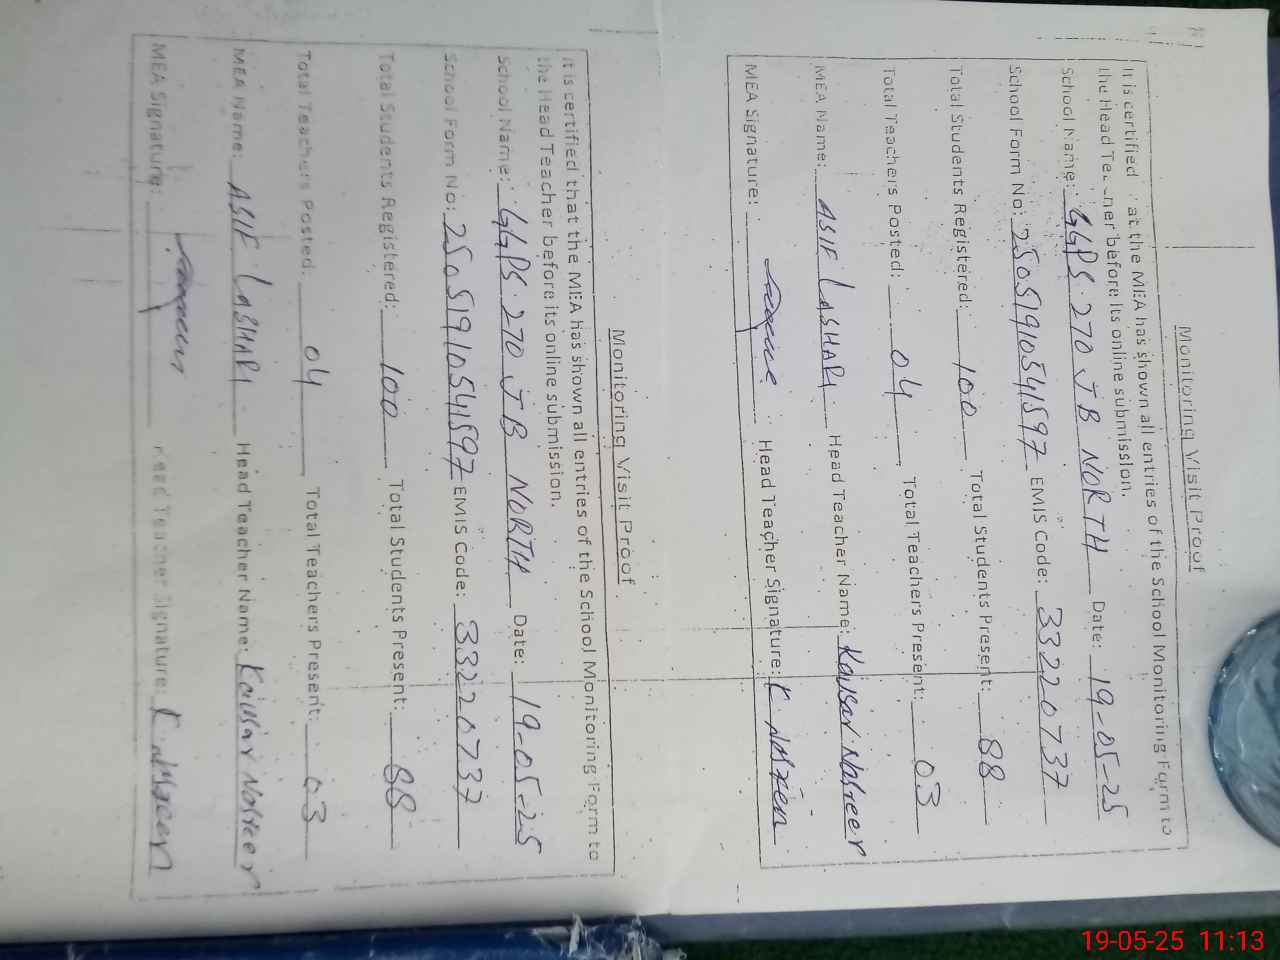 Monitoring Visit Proof
It is certified at the MEA has shown all entries of the School Monitoring Form to
the Head before its online submission.
School Name: GGPS 270 JB NORTH Date: 19-05-25
School Form No: 25051910541597 EMIS Code: 33220737
Total Students Registered: 100 Total Students Present: 88
Total Teachers Posted: 04 Total Teachers Present: 03
MEA Name: ASIF LASHARI Head Teacher Name: Kausar Nasreen
MEA Signature: Head Teacher Signature: K
Monitoring Visit Proof
It is certified that the MEA has shown all entries of the School Monitoring Form to
the Head Teacher before its online submission.
School Name: GGPS 270 JB NORTH Date: 19-05-25
School Form No: 25051910541597 EMIS Code: 33220737
Total Students Registered: 100 Total Students Present: 88
Total Teachers Posted: 04 Total Teachers Present: 03
MEA Name: ASIF LASHARI Head Teacher Name: Kausar Nasreen
MEA Signature: Head Teacher Signature: K
19-05-25 11:13